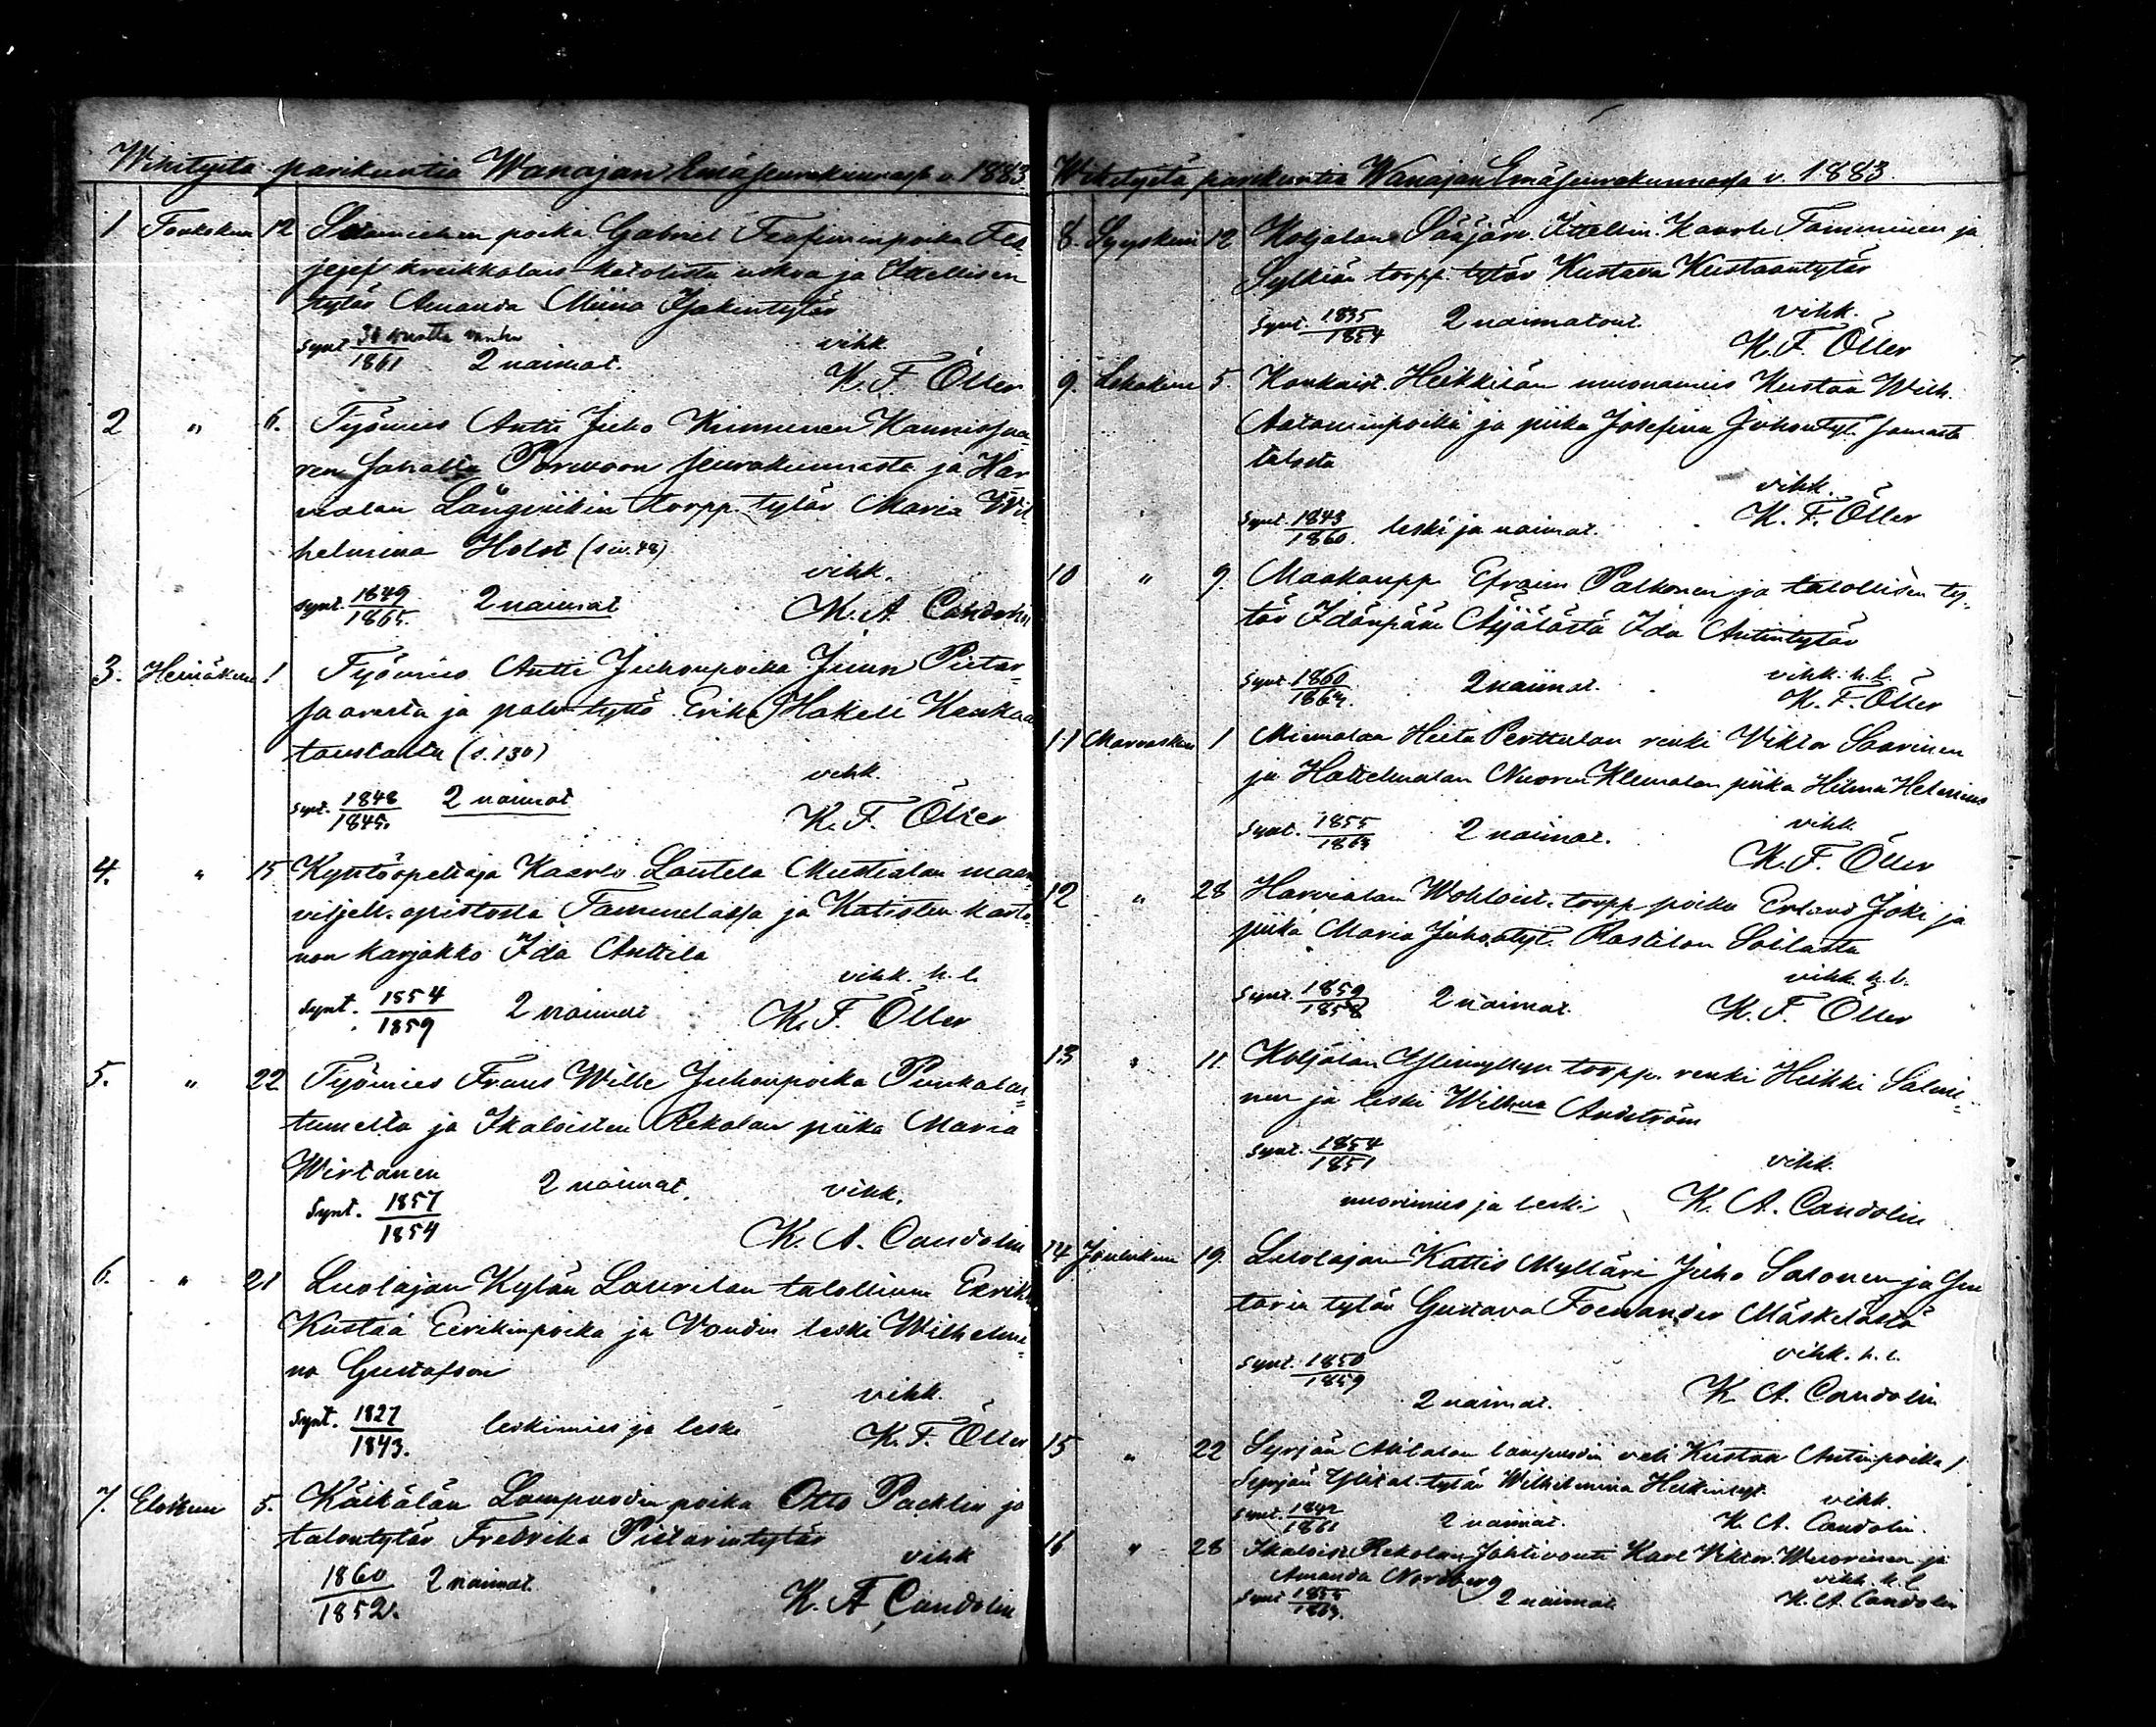 Wihityitä parikuntia Wanajan Emäseurakunnassa v. 1883.
1 Toukokuu 12 poika Gabriel
kreikkalais katolista uskoa ja Itsellisen
tytär Amanda Miina Isakintytär
synt. 31 vuotta vanha / 1861 2 naimat. vihk.
K. F. Öller
2 " 6. Työmies Antti Juho Kimunen
ren sahalta Porvoon seurakunnasta ja Har
vialan Långviikin torpp. tytär Maria Wil
helmina Holst (siv. 48)
vihk.
synt. 1849 / 1865. 2 naimat K. A. Candolin
3. Heinäkuu 1 Työmies Antti Juhonpoika Pietar=
saaresta ja palv. tyttö Erika Hakell Kankaan
taustasta (s. 130)
vihk.
synt. 1848 / 1845. 2 naimat K. F. Öller
4. " 15 Kyntöopettaja Kaarlo Lautela Mustialan maan
viljell. opistosta Tammelassa ja Katisten karta
non karjakko Ida Anttila
vihk. h. l.
Synt. 1854 / 1859 2 naimat K. F. Öller
5. " 22 Työmies Frans Wille Juhonpoika Punkalai=
tumelta ja Ikaloisten Rekolan piika Maria
Wirtanen 2 naimat. vihk.
Synt. 1857 / 1854 K. A. Candolin
6. " 21 Luolajan Kylän Laurilan talollinen Eerik
Kustaa Eerikinpoika ja Voudin leski Wilhelmi=
na Gustafson
vihk.
Synt. 1827 / 1843. leskimies ja leski K. F. Öller
7. Elokuu 5. Käikälän Lampuodin poika Otto Packlin ja
talontytär Fredrika Pietarintytär
vihk
1860 / 1852. 2 naimat. K. A. Candolin
Wihityitä parikuntia Wanajan Emäseurakunnassa v. 1883.
8. Syyskuu 12 Koljalan Sääjärv. Itsellin. Kaarle Tamminen ja
torpp. tytär Kustava Kustaantytär
synt. 1835 / 1854 2 naimatont. vihk.
K. F. Öller
9. Lokakuu 5 Kankaist. Heikkilän muonamies Kustaa Wilh.
Aataminpoika ja piika Josefina Juhontyt. samasta
talosta
vihk.
Synt. 1843 / 1860. leski ja naimat. K. F. Öller
10 " 9. Maakaupp. Efraim Palkonen ja talollisen ty=
tär Idänpään Äijälästä Ida Antintytär
vihk. h. l.
Synt. 1860 / 1864. 2 naimat. K. F. Öller
11 Marraskuu 1 Miemalan Heita Perttulan renki Viktor Saarinen
ja Hattelmalan Nuoren Klemolan piika Hilma Helenius
vihk.
Synt. 1855 / 1863 2 naimat. K. F. Öller
12 " 28 Harvialan Wohloist. torpp. poika Erland Joki ja
piika Maria Juhontyt. Rastilan Soilasta
vihk. h. l.
Synt. 1859 / 1858 2 naimat. K. F. Öller
13 " 11. Koljalan torpp. renki Heikki Salmi=
nen ja leski Wilh:na Andström
synt. 1854 / 1851 vihk.
nuorimies ja leski K. A. Candolin
14 Joulukuu 19. Luolajan Kattis Mylläri Juho Salonen ja
taria tytär Gustava Foenander Mäskelästä
vihk. h. l.
synt. 1850 / 1859
2 naimat. K. A. Candolin
15 " 22 Syrjän Alitalon lampuodin veli Kustaa Antinpoika j.
Syrjän Ylital. tytär Wilhelmina Heikintyt. vihk.
synt. 1842 / 1861 2 naimat. K. A. Candolin.
16 " 28 Ikalois. Rekolan Jahtivouti Karl Viktor Wuorinen ja
Amanda Nordberg vihk. h. l.
Synt. 1855 / 1863. 2 naimat. K. A. Candolin